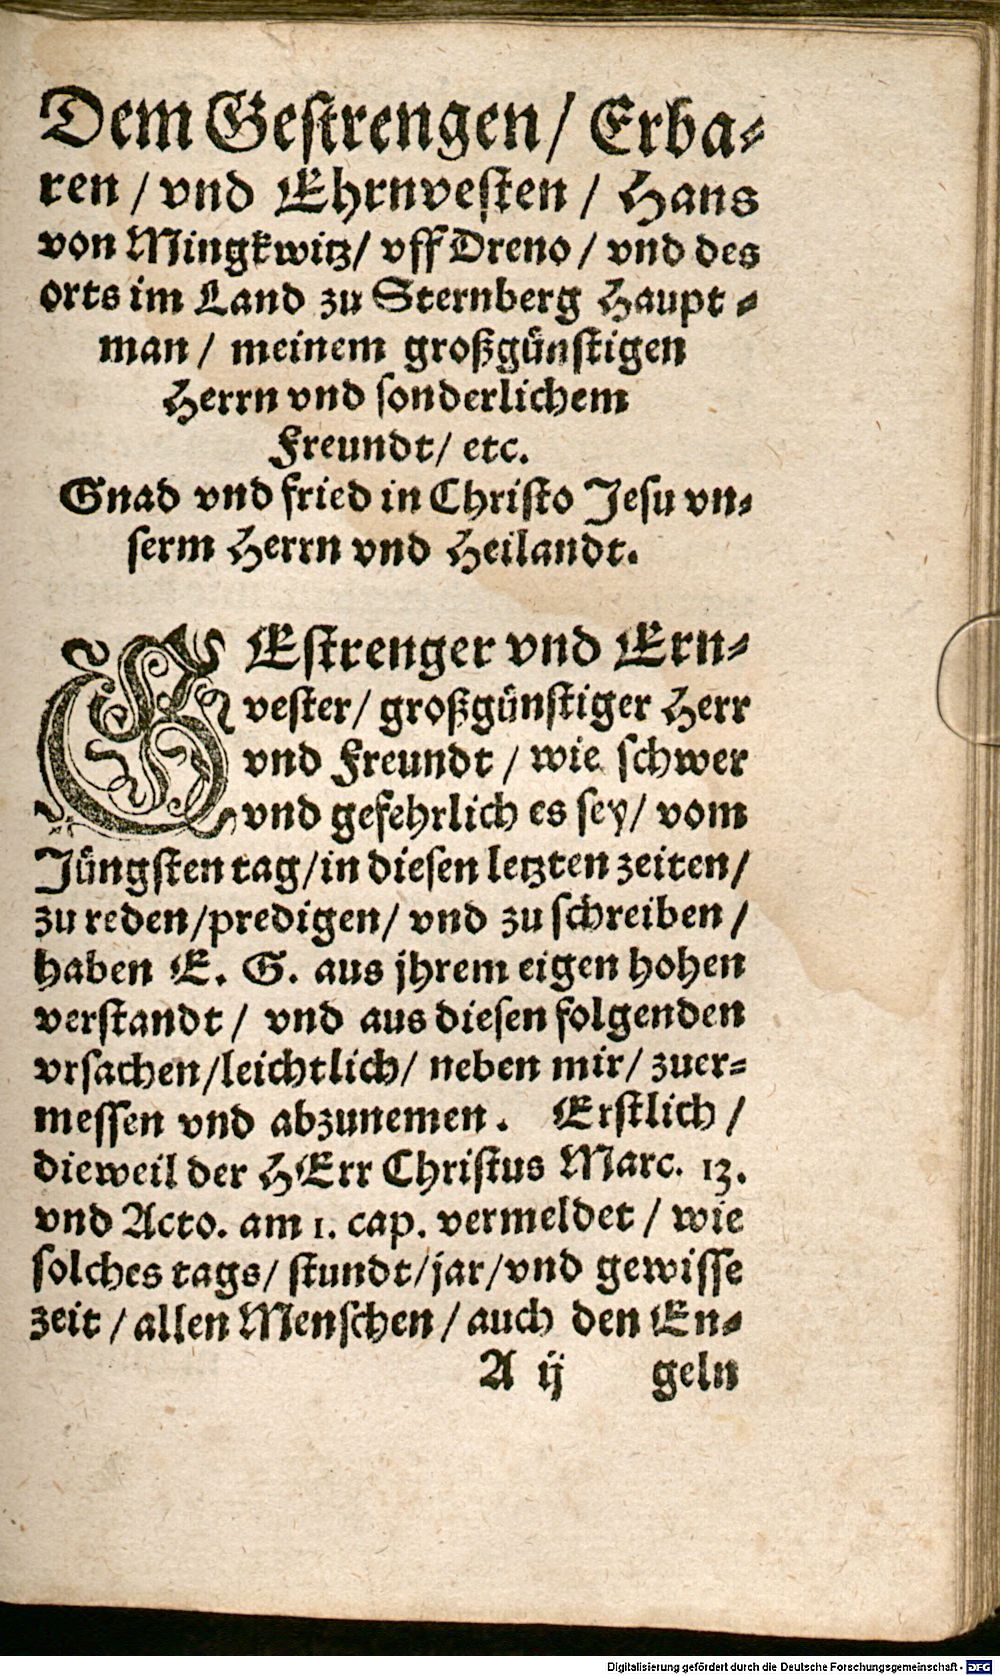 Dem Gestrengen/ Erba⸗
ren/ vnd Ehrnvesten/ Hans
von Mingkwitz/ vff Dreno/ vnd des
orts im Land zu Sternberg Haupt⸗
man/ meinem großgünstigen
Herrn vnd sonderlichem
Freundt/ etc.
Gnad vnd fried in Christo Jesu vn⸗
serm Herrn vnd Heilandt.
GEstrenger vnd Ern⸗
vester/ großgünstiger Herr
vnd Freundt/ wie schwer
vnd gefehrlich es sey/ vom
Jüngsten tag/in diesen letzten zeiten/
zu reden/predigen/ vnd zu schreiben/
haben E. G. aus jhrem eigen hohen
verstandt/ vnd aus diesen folgenden
vrsachen/leichtlich/ neben mir/ zuer⸗
messen vnd abzunemen. Erstlich/
dieweil der HErr Christus Marc. 13.
vnd Acto. am 1. cap. vermeldet/ wie
solches tags/ stundt/jar/vnd gewisse
zeit/ allen Menschen/ auch den En⸗
A ij geln
Digitalisierung gefördert durch die Deutsche Forschungsgemeinschaft - DFG